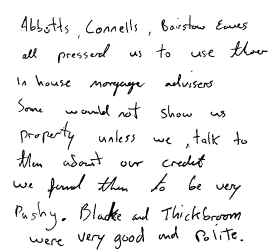 Abbotts, Connells, Bairstow Eaves
all presserd us to use their
in house morgage advisers
Some would not show us
property unless we, talk to
them about our credet
we found them to be very
Pushy. Blacke and Thickbroom
were very good and Polite.